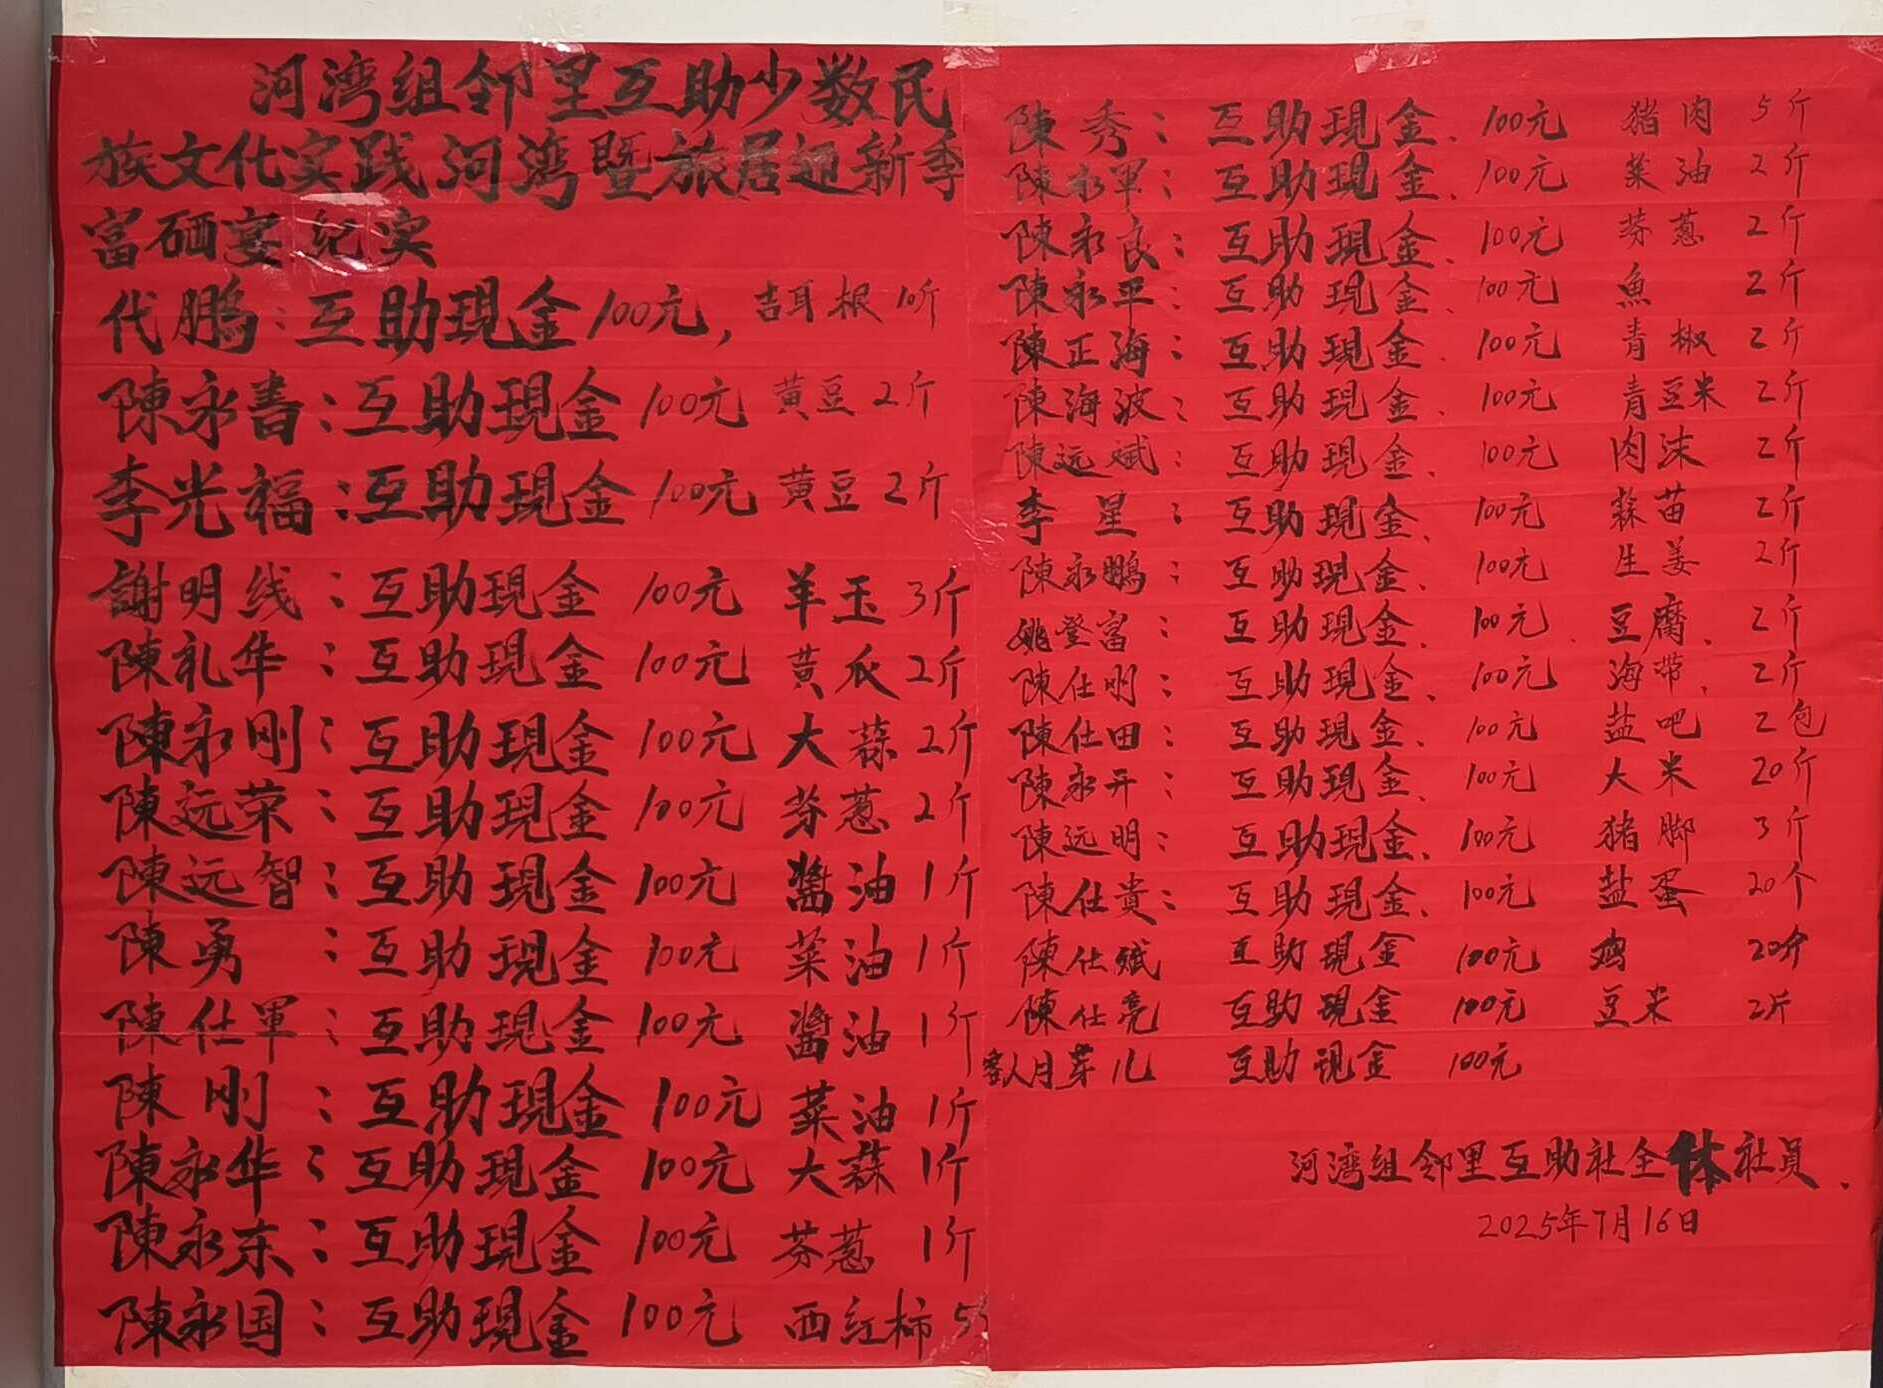 河湾组邻里互助少数民
族文化实践河湾暨旅居迎新季
富硒宴纪实
代鹏：互助現金100元，吉耳根10斤
陳永書：互助現金100元 黄豆2斤
李光福：互助現金100元 黄豆2斤
謝明线：互助現金100元 羊玉3斤
陳礼华：互助現金100元 黄瓜2斤
陳永刚：互助現金100元 大蒜2斤
陳远荣：互助現金100元 芬葱2斤
陳远智：互助現金100元 醬油1斤
陳勇：互助現金100元 菜油1斤
陳仕軍：互助現金100元 醬油1斤
陳刚：互助現金100元 菜油1斤
陳永华：互助現金100元 大蒜1斤
陳永东：互助現金100元 芬葱1斤
陳永国：互助現金100元 西红柿5
陳秀：互助現金.100元 猪肉5斤
陳永軍：互助現金.100元 菜油2斤
陳永良：互助現金.100元 芬葱2斤
陳永平：互助現金.100元 魚2斤
陳正海：互助現金.100元 青椒2斤
陳海波：互助現金.100元 青豆米2斤
陳远斌：互助現金.100元 肉沫2斤
李星：互助現金.100元 蒜苗2斤
陳永鵬：互助現金.100元 生姜2斤
姚登富：互助現金.100元.豆腐.2斤
陳仕明：互助現金.100元 海带.2斤
陳仕田：互助現金.100元 盐吧2包
陳永开：互助現金.100元 大米20斤
陳远明：互助現金.100元 猪脚3斤
陳仕貴：互助現金.100元 盐蛋20个
陳仕斌 互助現金100元 鸡20斤
陳仕亮 互助現金100元 豆米2斤
客人月芽儿 互助現金100元
河湾组邻里互助社全体社員.
2025年7月16日